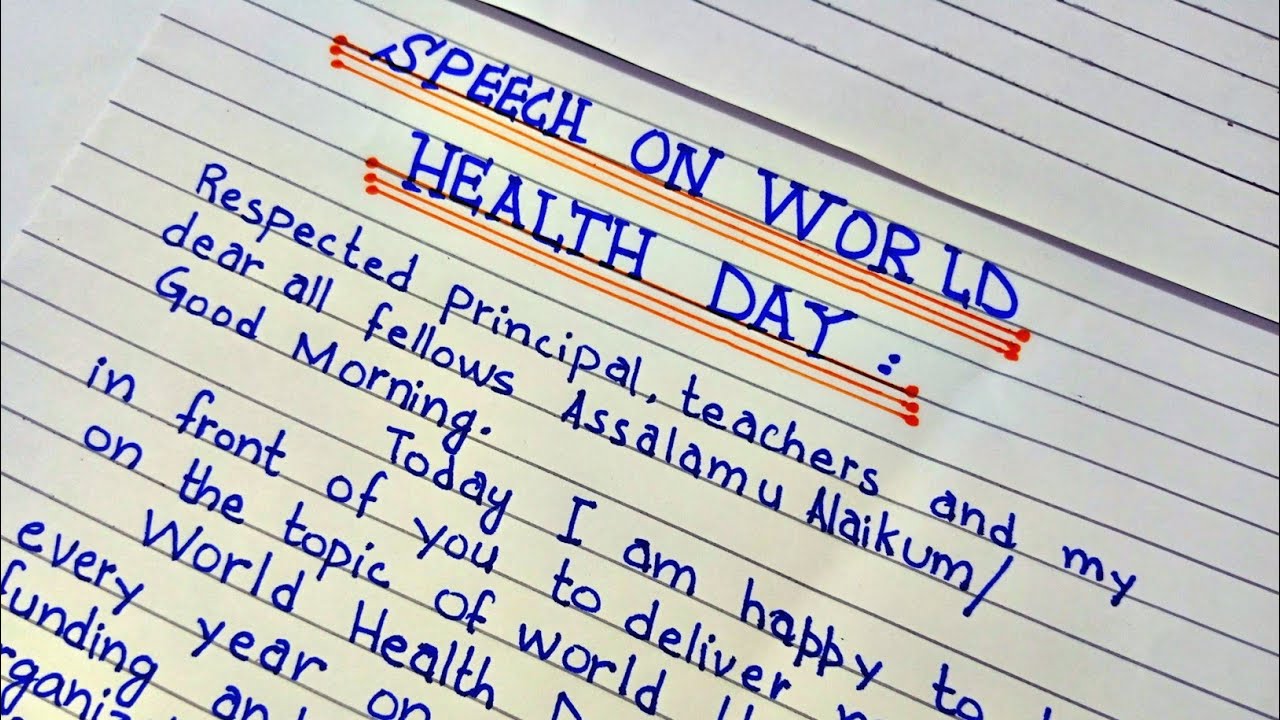 SPEECH ON WORLD
HEALTH DAY :
Respected principal, teachers and my
dear all fellows Assalamu Alaikum/
Good Morning.
Today I am happy to
in front of you to deliver
on the topic of world
World Health
every year on
funding